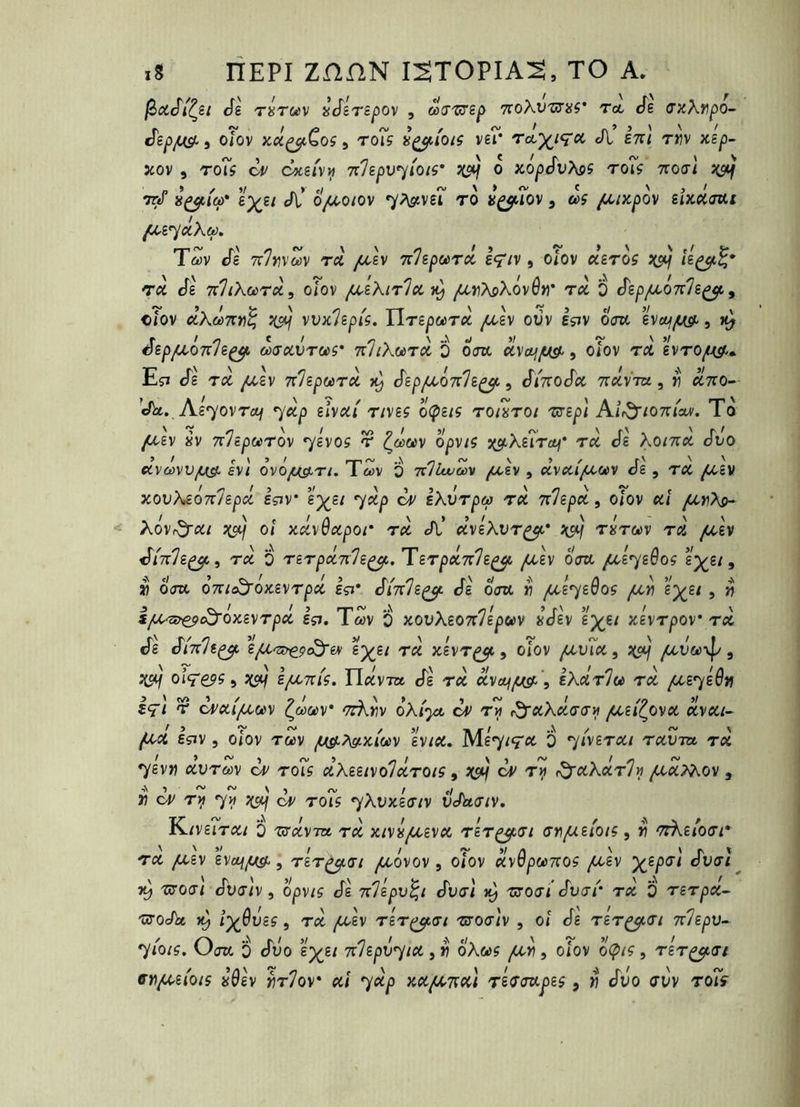 18 ΠΕΡΙ ΖΩΩΝ ΙΣΤΟΡΙΑΣ, ΤΟ Α.
βαδίζει δὲ τούτων οὐδέτερον, ὥσπερ πολύπους· τὰ δὲ σκληρό-
δερμα, οἷον κάραβος, τοῖς οὐραίοις νεῖ· τάχιστα δ᾽ ἐπὶ τὴν κέρ-
κον, τοῖς ἐν ἐκείνῃ πτερυγίοις· καὶ ὁ κορδύλος τοῖς ποσὶ καὶ
τῷ οὐραίῳ· ἔχει δ᾽ ὅμοιον γλανεῖ τὸ οὐραῖον, ὡς μικρὸν εἰκάσαι
μεγάλῳ.
Τῶν δὲ πτηνῶν τὰ μὲν πτερωτά ἐστιν, οἷον ἀετὸς καὶ ἱέραξ·
τὰ δὲ πτιλωτὰ, οἷον μέλιττα καὶ μηλολόνθη· τὰ δὲ δερμόπτερα,
οἷον ἀλώπηξ καὶ νυκτερίς. Πτερωτὰ μὲν οὖν ἐστιν ὅσα ἔναιμα, καὶ
δερμόπτερα ὡσαύτως· πτιλωτὰ δὲ ὅσα ἄναιμα, οἷον τὰ ἔντομα.
Εστι δὲ τὰ μὲν πτερωτὰ καὶ δερμόπτερα, δίποδα πάντα, ἢ ἄπο-
δα. Λέγονται γὰρ εἶναί τινες ὄφεις τοιοῦτοι περὶ Αἰθιοπίαν. Τὸ
μὲν οὖν πτερωτὸν γένος τῶν ζώων ὄρνις καλεῖται· τὰ δὲ λοιπὰ δύο
ἀνώνυμα ἑνὶ ὀνόματι. Τῶν δὲ πτηνῶν μὲν, ἀναίμων δὲ, τὰ μὲν
κουλεόπτερά ἐστιν· ἔχει γὰρ ἐν ἐλύτρῳ τὰ πτερὰ, οἷον αἱ μηλο-
λόνθαι καὶ οἱ κάνθαροι· τὰ δ᾽ ἀνέλυτρα· καὶ τούτων τὰ μὲν
δίπτερα, τὰ δὲ τετράπτερα. Τετράπτερα μὲν ὅσα μέγεθος ἔχει,
ἢ ὅσα ὀπισθόκεντρά ἐστι· δίπτερα δὲ ὅσα ἢ μέγεθος μὴ ἔχει, ἢ
ἐμπροσθόκεντρά ἐστι. Τῶν δὲ κουλεοπτέρων οὐδὲν ἔχει κέντρον· τὰ
δὲ δίπτερα ἔμπροσθεν ἔχει τὰ κέντρα, οἷον μυῖα, καὶ μύωψ,
καὶ οἶστρος, καὶ ἐμπίς. Πάντα δὲ τὰ ἄναιμα, ἐλάττω τὰ μεγέθη
ἐστὶ τῶν ἐναίμων ζώων· πλὴν ὀλίγα ἐν τῇ θαλάσσῃ μείζονα ἄναι-
μά ἐστιν, οἷον τῶν μαλακίων ἔνια. Μέγιστα δὲ γίνεται ταῦτα τὰ
γένη αὐτῶν ἐν τοῖς ἀλεεινοτάτοις, καὶ ἐν τῇ θαλάττῃ μᾶλλον,
ἢ ἐν τῇ γῇ καὶ ἐν τοῖς γλυκέσιν ὕδασιν.
Κινεῖται δὲ πάντα τὰ κινούμενα τέτρασι σημείοις, ἢ πλείοσι·
τὰ μὲν ἔναιμα, τέτρασι μόνον, οἷον ἄνθρωπος μὲν χερσὶ δυσὶ
καὶ ποσὶ δυσὶν, ὄρνις δὲ πτέρυξι δυσὶ καὶ ποσὶ δυσί· τὰ δὲ τετρά-
ποδα καὶ ἰχθύες, τὰ μὲν τέτρασι ποσὶν, οἱ δὲ τέτρασι πτερυ-
γίοις. Οσα δὲ δύο ἔχει πτερύγια, ἢ ὅλως μὴ, οἷον ὄφις, τέτρασι
σημείοις οὐθὲν ἧττον· αἱ γὰρ καμπαὶ τέσσαρες, ἢ δύο σὺν τοῖς